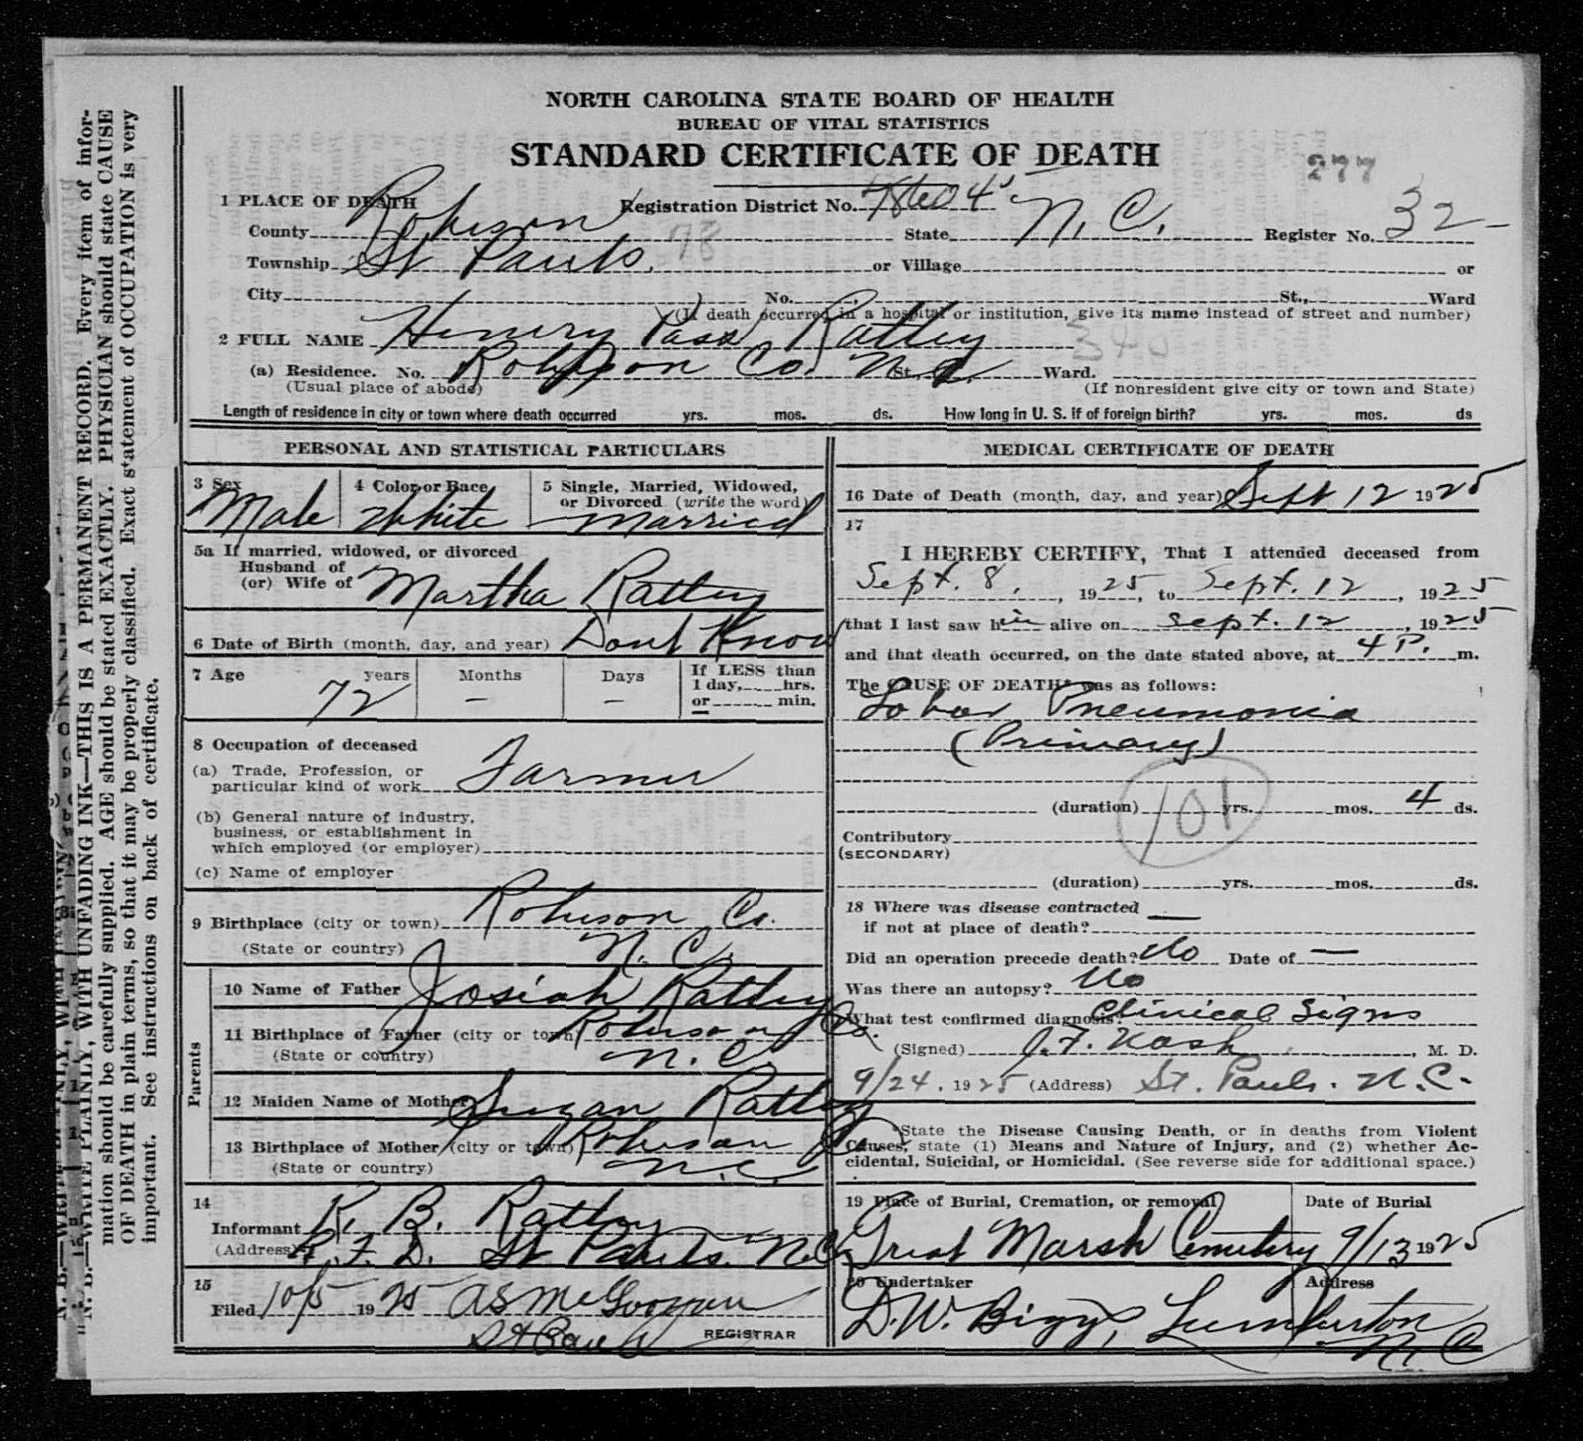 NORTH CAROLINA STATE BOARD OF HEALTH
BUREAU OF VITAL STATISTICS
STANDARD CERTIFICATE OF DEATH
277
1 PLACE OF DEATH Registration District No.
County Robeson State N. C. Register No. 32
78
Township St Pauls. or Village or
City No. St., Ward
(If death occurred in a hospital or institution, give its name instead of street and number)
2 FULL NAME Henery Ratley
340
(a) Residence. No. Robeson Co. N. C. St. Ward.
(Usual place of abode) (If nonresident give city or town and State)
Length of residence in city or town where death occurred yrs. mos. ds. How long in U. S. if of foreign birth? yrs. mos. ds
PERSONAL AND STATISTICAL PARTICULARS
3 Sex 4 Color or Race 5 Single, Married, Widowed,
or Divorced (write the word)
Male White Married
5a If married, widowed, or divorced
Husband of
(or) Wife of Martha Ratley
6 Date of Birth (month, day, and year) Dont Know
7 Age years Months Days If LESS than
1 day, hrs.
or min.
72 — —
8 Occupation of deceased
(a) Trade, Profession, or
particular kind of work Farmer
(b) General nature of industry,
business, or establishment in
which employed (or employer)
(c) Name of employer
9 Birthplace (city or town) Robeson Co.
(State or country) N. C.
Parents
10 Name of Father Josiah Ratley
11 Birthplace of Father (city or town) Robeson Co.
(State or country) N. C.
12 Maiden Name of Mother Susan Ratley
13 Birthplace of Mother (city or town) Robeson Co.
(State or country) N. C.
14
Informant K. B. Ratley
(Address) R. F. D. St Pauls. N.C.
15
Filed 10/5 1925 A S McGoogan
St Pauls REGISTRAR
MEDICAL CERTIFICATE OF DEATH
16 Date of Death (month, day, and year) Sept 12 1925
17
I HEREBY CERTIFY, That I attended deceased from
Sept. 8, , 1925, to Sept. 12 , 1925
that I last saw him alive on Sept. 12 , 1925
and that death occurred, on the date stated above, at 4 P. m.
The CAUSE OF DEATH* was as follows:
Lobar Pneumonia
(Primary)
(duration) yrs. mos. 4 ds.
101
Contributory
(SECONDARY)
(duration) yrs. mos. ds.
18 Where was disease contracted —
if not at place of death?
Did an operation precede death? No Date of —
Was there an autopsy? No
What test confirmed diagnosis? Clinical Signs
(Signed) J. F. Nash , M. D.
9/24. 1925 (Address) St. Pauls. N. C.
*State the Disease Causing Death, or in deaths from Violent
Causes, state (1) Means and Nature of Injury, and (2) whether Ac-
cidental, Suicidal, or Homicidal. (See reverse side for additional space.)
19 Place of Burial, Cremation, or removal Date of Burial
Great Marsh Cemetery 9/13 1925
20 Undertaker Address
D. W. Biggs, Lumberton
N. C
N. B.—WRITE PLAINLY, WITH UNFADING INK—THIS IS A PERMANENT RECORD. Every item of infor-
mation should be carefully supplied. AGE should be stated EXACTLY. PHYSICIAN should state CAUSE
OF DEATH in plain terms, so that it may be properly classified. Exact statement of OCCUPATION is very
important. See instructions on back of certificate.